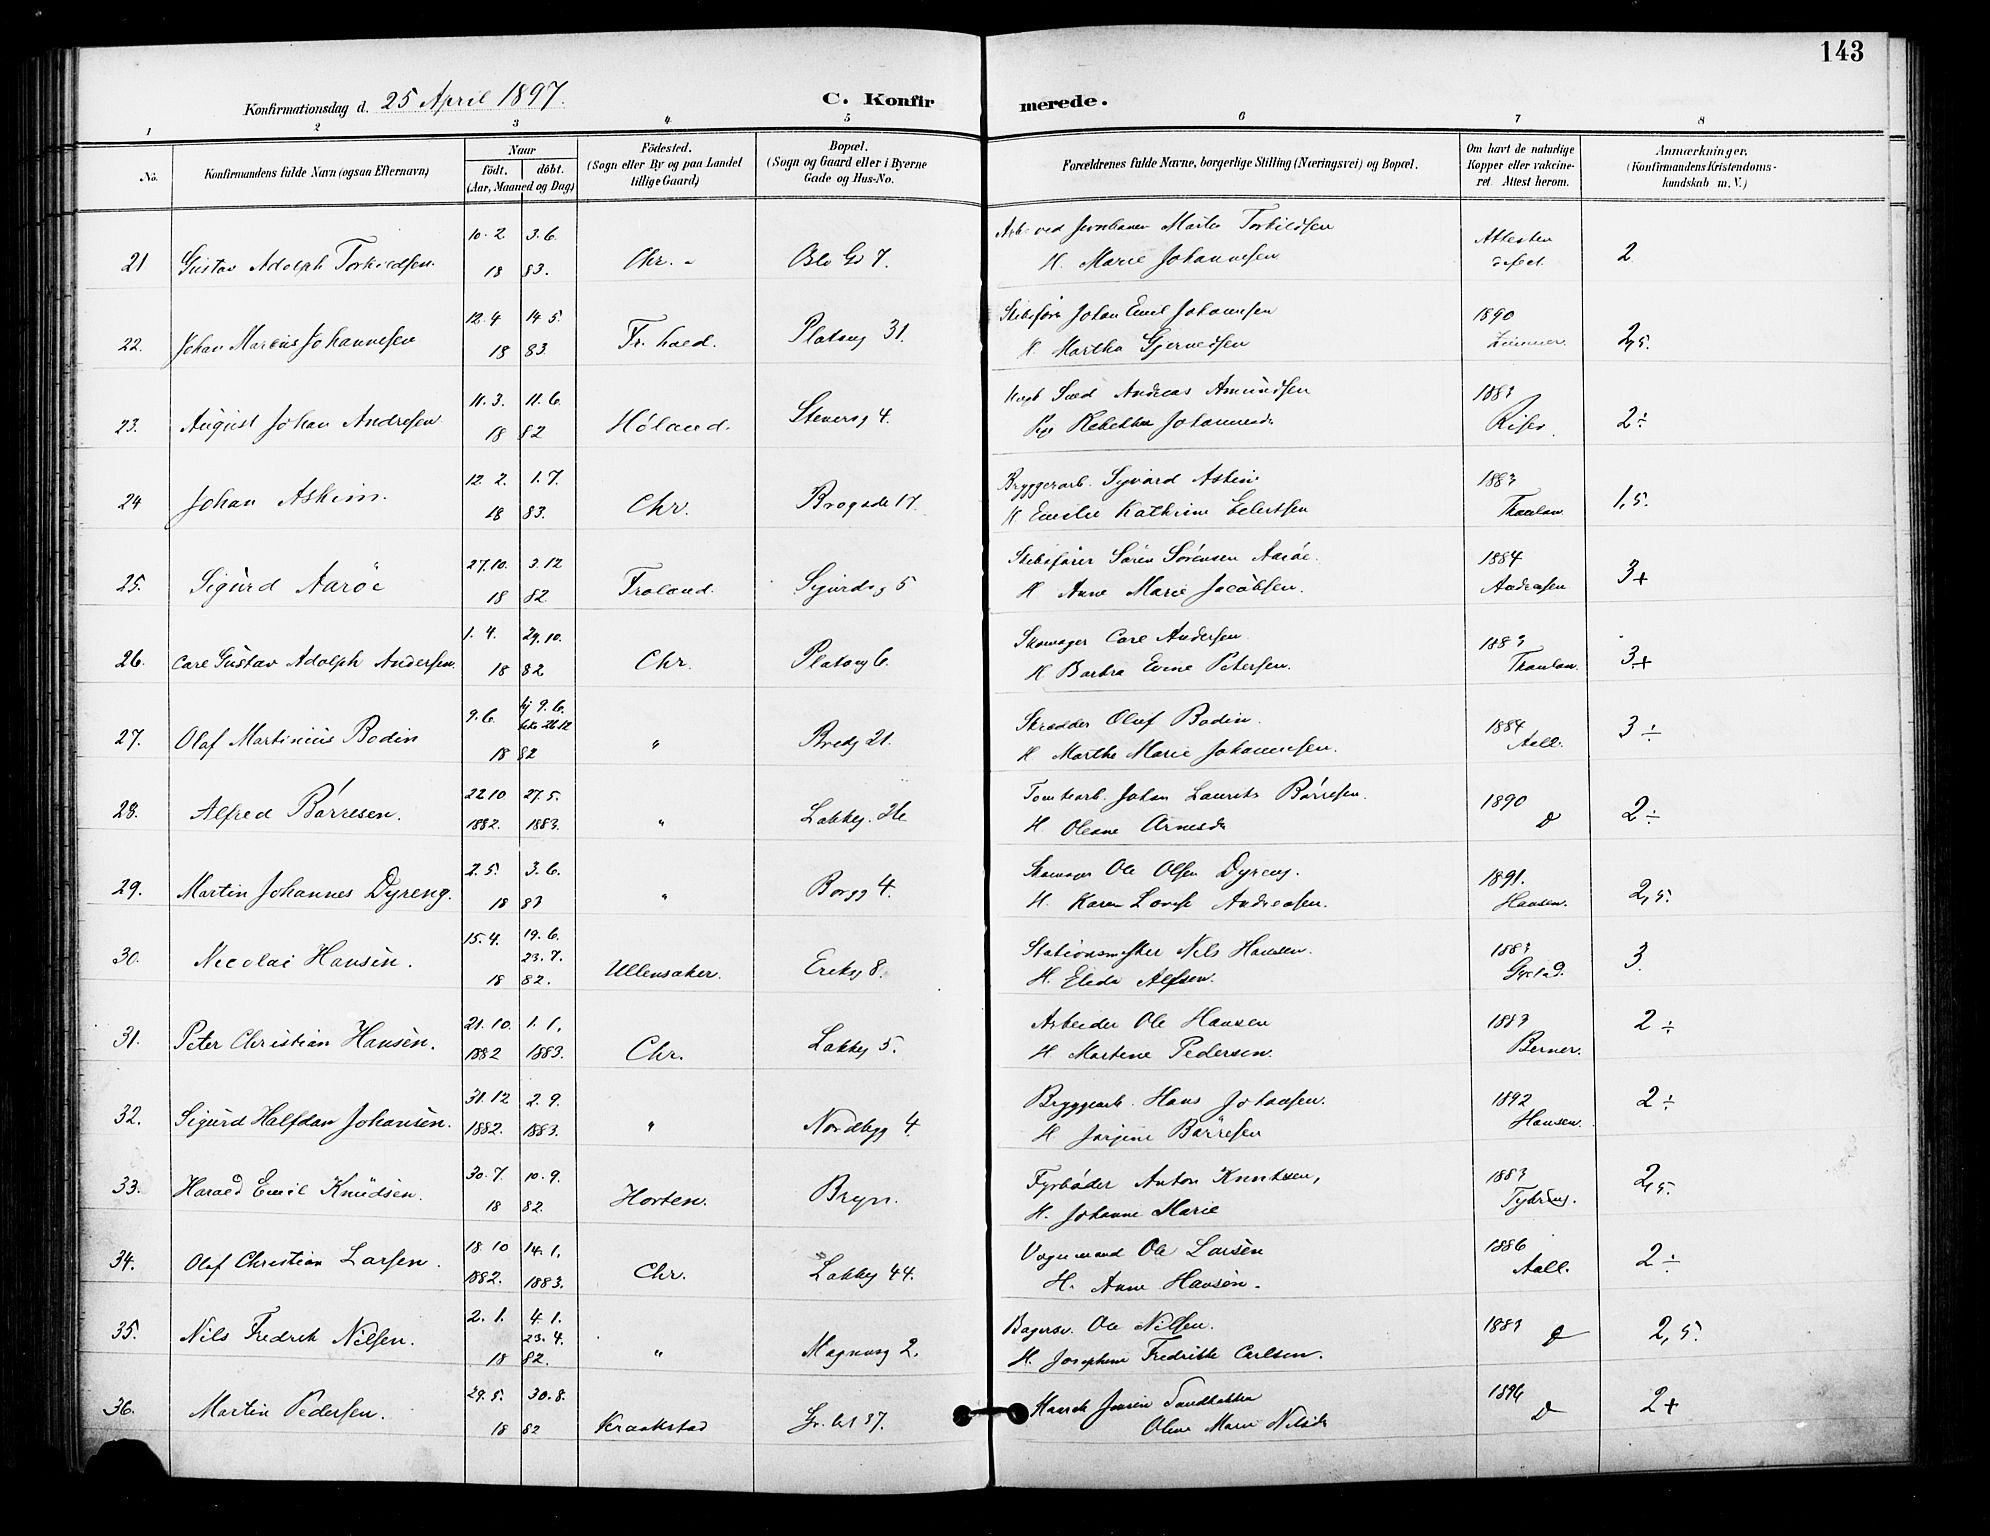 143
Konfirmationsdag d. 25 April 1897.
C. Konfirmerede.
1 2 3 4 5 6 7 8
No.
Konfirmandens fulde Navn (ogsaa Efternavn)
Naar
födt. döbt.
(Aar, Maaned og Dag)
Födested.
(Sogn eller By og paa Landet
tillige Gaard)
Bopæl.
(Sogn og Gaard eller i Byerne
Gade og Hus-No.
Forældrenes fulde Navne, borgerlige Stilling (Næringsvei) og Bopæl.
Om havt de naturlige
Kopper eller vakcine-
ret. Attest herom.
Anmærkninger.
(Konfirmandens Kristendoms-
kundskab m. V.)
10. 2. 3. 6. Arb. ved Jernbanen Martin Torkildsen Attesten
21 Gustav Adolph Torkildsen. 18 83. Chr. Oslo Gd 7. H. Marie Johannesen defect. 2
12. 4 14. 5. Skibsfører Johan Emil Johannesen 1890
22. Johan Marcus Johannesen 18 83. Fr. hald. Platoug 31. H. Martha Gjermedsen 2,5.
11. 3. 11. 6. Andreas Amundsen 1883
23. August Johan Andresen 18 82 Høland. Stenersg 4. Pige Rebekka Johannesd. Riser. 2÷
12. 2. 1. 7. Bryggerarb. Syvard Askim 1883
24 Johan Askim. 18 83. Chr. Brogade 17. H Emelie Kathrine Eilertsen Thaulow. 1,5.
27. 10. 3. 12 Skibsfører Sören Sörensen Aaröe. 1884
25. Sigurd Aaröe 18 82. Froland. Sigurdsg 5 H Anne Marie Jacobsen. Andresen 3+
1. 4. 29. 10. Skomager Carl Andersen 1883
26. Carl Gustav Adolph Andersen. 18 82 Chr. Platoug 6. H Barbra Evine Petersen. Thaulow. 3+
9. 6. hj 9. 6. Skrædder Oluf Bodin. 1884
bekr. 26. 12
27. Olaf Martinius Bodin 18 82 " Bredg 21. H Marthe Marie Johannesen. Aall. 3÷
22. 10 27. 5. Tomtearb. Johan Laurits Børresen. 1890
28. Alfred Börresen. 1882. 1883. " Lakkeg. 26. H Oleane Arnesdr D 2÷
2. 5. 3. 6. Skomager Ole Olsen Dyreng. 1891.
29. Martin Johannes Dyreng. 18 83 " Borgg 4. H. Karen Lovise Andreasen. Hansen. 2,5.
15. 4. 19. 6. Stationsmester Nils Hansen. 1883
23. 7.
30. Nicolai Hansen. 18 82. Ullensaker. Erikg 8. H. Eleda Alfsen. 3.
21. 10. 1. 1. Arbeider Ole Hansen 1883
31. Peter Christian Hansen. 1882 1883. Chr. Lakkeg 5. H. Martine Pedersen. Berner. 2÷
31. 12 2. 9. Bryggearb. Hans Johansen. 1892
32. Sigurd Halfdan Johansen. 1882. 1883. " Nordbygg 4. H Jørgine Børresen Hansen. 2÷
30. 7. 10. 9. Fyrbøder Anton Knutsen, 1883
33. Harald Emil Knudsen. 18 82. Horten. Bryn. H. Johanne Marie 2,5.
18. 10 14. 1. Vognmand Ole Larsen 1886
34. Olaf Christian Larsen. 1882. 1883. Chr. Lakkeg 44. H. Anne Hansen. Aall. 2÷
2. 1. 4. 1. Bagersv. Ole Nilsen. 1883 D
23. 4.
35. Nils Fredrik Nilsen. 18 82. " Magnusg 2. H. Josephine Fredrikke Carlsen. 2,5.
29. 5. 30. 8. Jensen Sandbakken 1896
36. Martin Pedersen. 18 82 Kraakstad 37. Oline Marie Nilsdr D 2+